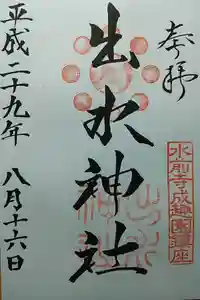 奉拝
水前寺成趣園鎮座
出水神社
平成二十九年 八月十六日